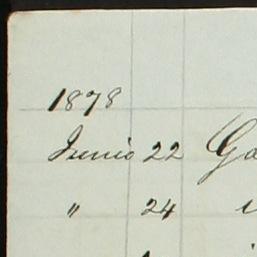 1878
Junio 22
" 24